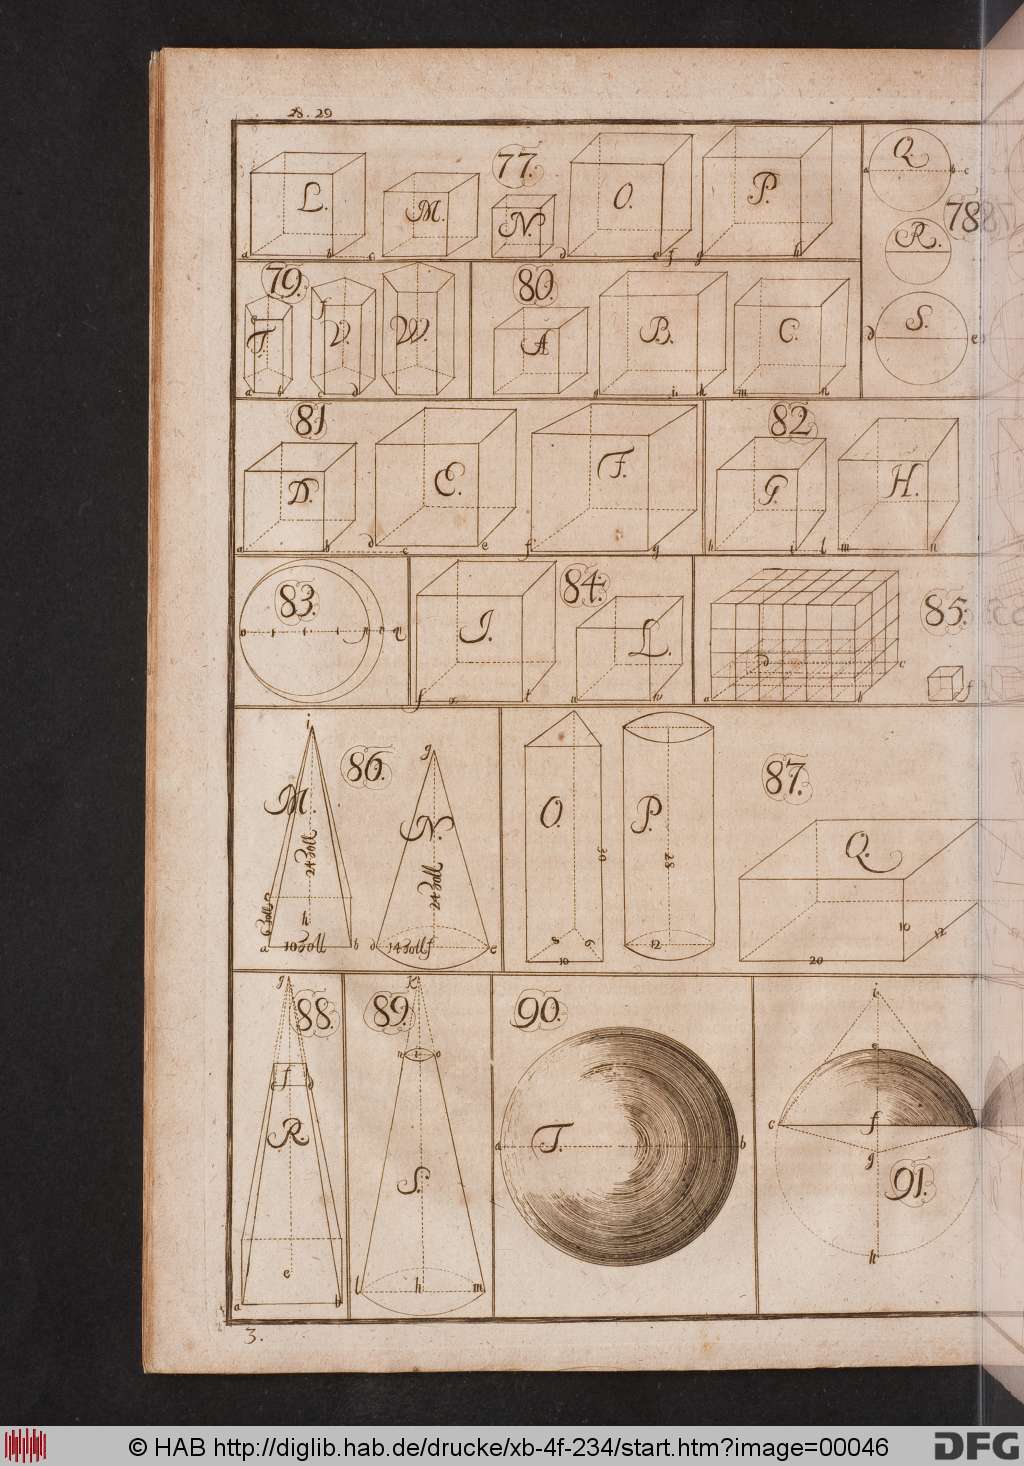 28. 29
77.
L.
M.
N.
O.
P.
a b c
d e f
g h
78
Q.
a b c
R.
S.
d e
79.
T.
V.
W.
a b
c d
f
80.
A
B.
C.
i k
m n
81
D.
E.
F.
a b c
d e
f g
82
G.
H.
h i l
m n
83.
84.
I.
L.
f t
u w
85
a b
d c
f
86.
i
M.
24 Zoll
6 Zoll
h
a 10 Zoll b
g
N.
24 Zoll
d 14 Zoll f e
87.
O.
30
8 6
10
P.
28
12
Q.
10 12
20
88.
g
f
R.
e
a b
89.
K
n i o
S.
l h m
90.
T.
a b
91.
i
e
c f
g
h
3.
© HAB http://diglib.hab.de/drucke/xb-4f-234/start.htm?image=00046
DFG